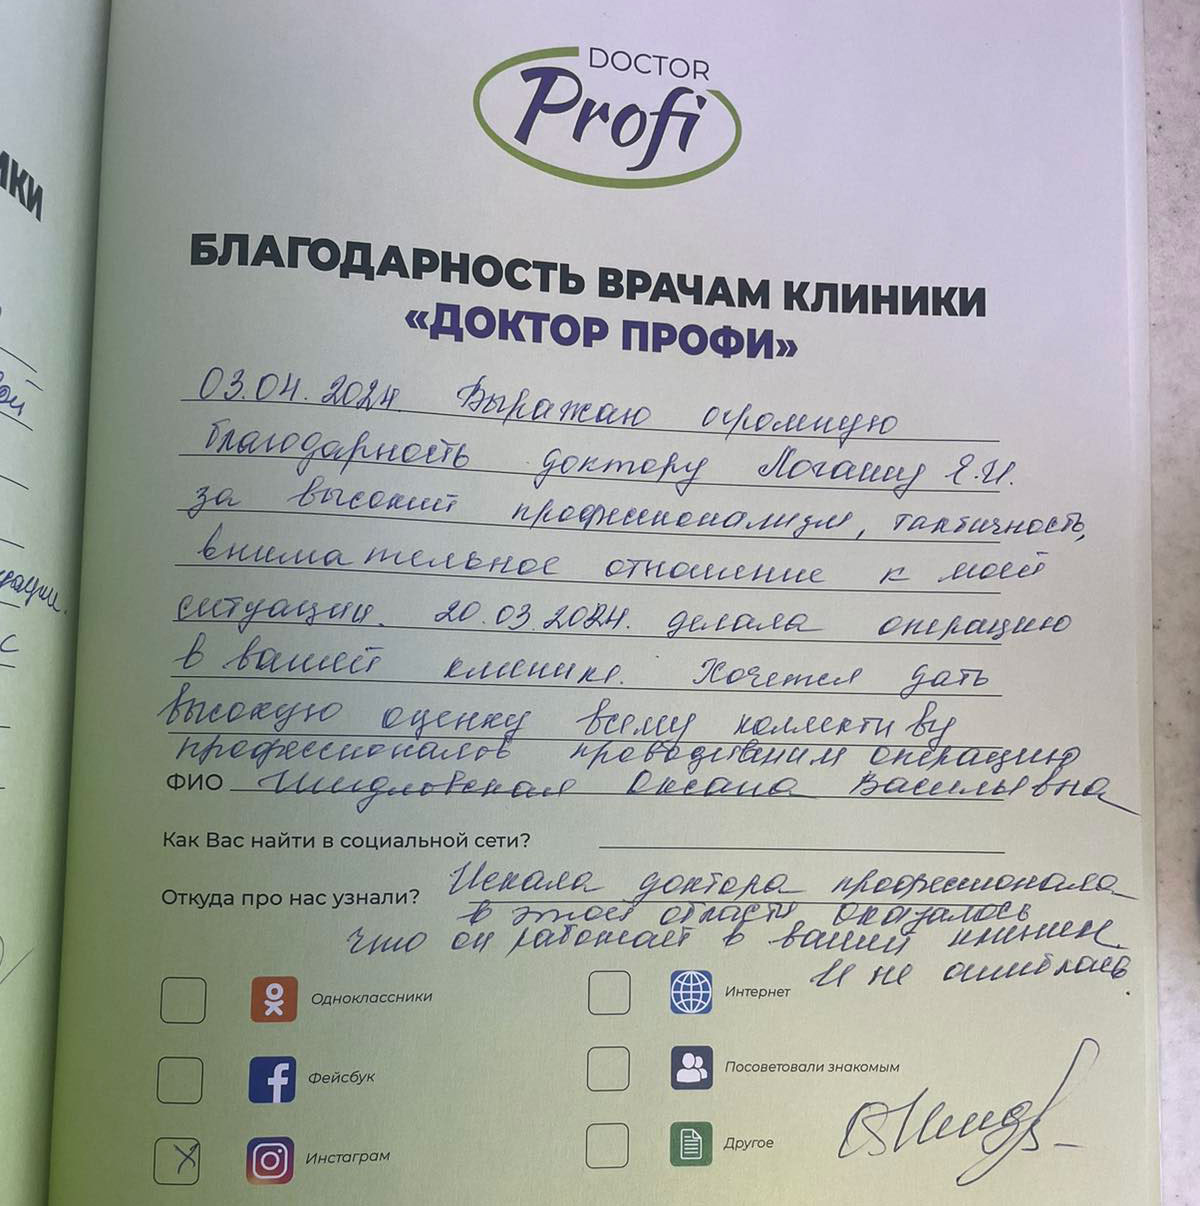 DOCTOR
Profi
ИКИ
БЛАГОДАРНОСТЬ ВРАЧАМ КЛИНИКИ
«ДОКТОР ПРОФИ»
03.04.2024. Выражаю огромную
благодарность доктору Логашу Е.И.
за высокий профессионализм, тактичность,
внимательное отношение к моей
ситуации. 20.03.2024. делала операцию
в вашей клинике. Хочется дать
высокую оценку всему коллективу
профессионалов проводившим операцию
ФИО Шидловская Оксана Васильевна
Как Вас найти в социальной сети?
Откуда про нас узнали? Искала доктора профессионала
в этой области, оказалось
что он работает в вашей клинике.
И не ошиблась.
Одноклассники
Интернет
Фейсбук
Посоветовали знакомым
Инстаграм
Другое